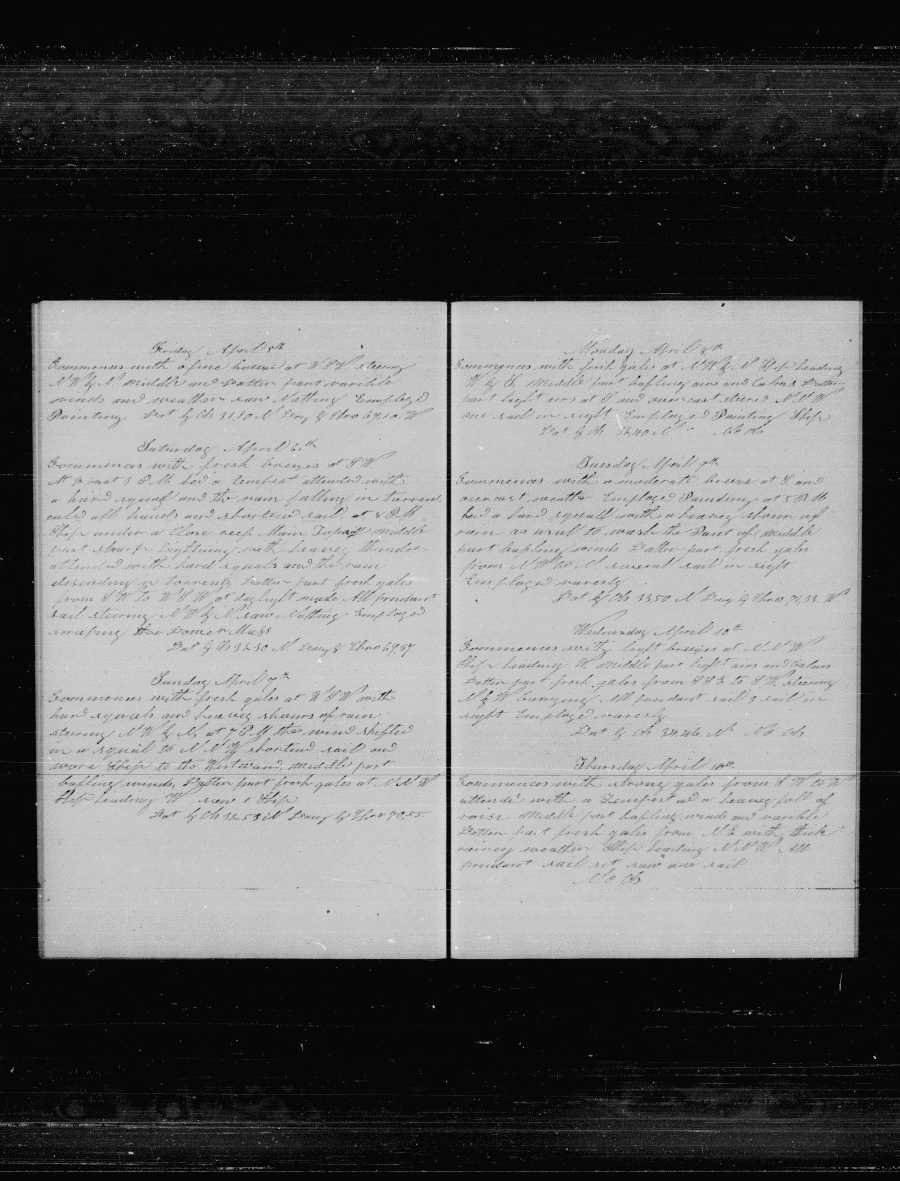 Friday April 5th
Commences with a fine breeze at W S W steering
N W by N middle and Latter part varible
winds and weather saw Nothing Employed
Painting Lat by Ob 31,10 N Long by Chro 69.10 W
Saturday April 6th
Commences with fresh breezes at S W
at 5 P.M had a tempest attended with
a hard squal and the rain falling in turrents
cald all hands and shortend sail at 8 P.M
Ship under a Close reef Main Topsail middle
part sharp lightning with heavey thunder
attended with hard squals and the rain
desending in torrents Latter part fresh gales
from S W to W S W at daylight made All prudant
sail steering N W by N saw Nothing Employed
scraping the Lower Masts
Lat by Ob 32.30 N Long by Chro 69,57
Sunday April 7th
Commences with fresh gales at W S W with
hard squals and heavey showrs of rain
stearing N W by N, at 7 P.M the wind shifted
in a squal to N N W shortend sail and
wore Ship to the Westward, middle part
bafling winds, Latter part fresh gales at N N W
Ship heading W saw 1 Ship
Lat by Ob 32.53 N Long by Chro 70,55
Monday April 8th
Commences with fresh gales at N W by N Ship heading
W by S Middle part bafling airs and Calms Latter
part light airs at S and overcast steered N N W
one sail in sight Employed Painting Ship
Lat by Ob 32.40 N No Ob
Tuesday April 9th
Commences with a moderate breeze at S and
overcast weather Employed Painting at 5 P.M
had a hard squall with a heavey showr of
rain as usul to wash the Paint of middle
part bafling winds Latter part fresh gales
from N W to N several sail in sight
Employed varously
Lat by Ob 33.50 N Long by Chro 71,33 W
Wednesday April 10th
Commences with light breezes at N N W
Ship heading W Middle part light airs and Calms
Latter part fresh gales from S S E to S W steering
N by W Carrying All prudant sail 9 sail in
sight Employed varously
Lat by Ob 34.46 N No Ob
Thursday April 11th
Commences with strong gales from S W to W
attended with a Tempest and a heavey fall of
rain Middle part bafling winds and varible
Latter part fresh gales from N E with thick
rainey weather Ship heading N N W All
prudant sail set saw one sail
No Ob